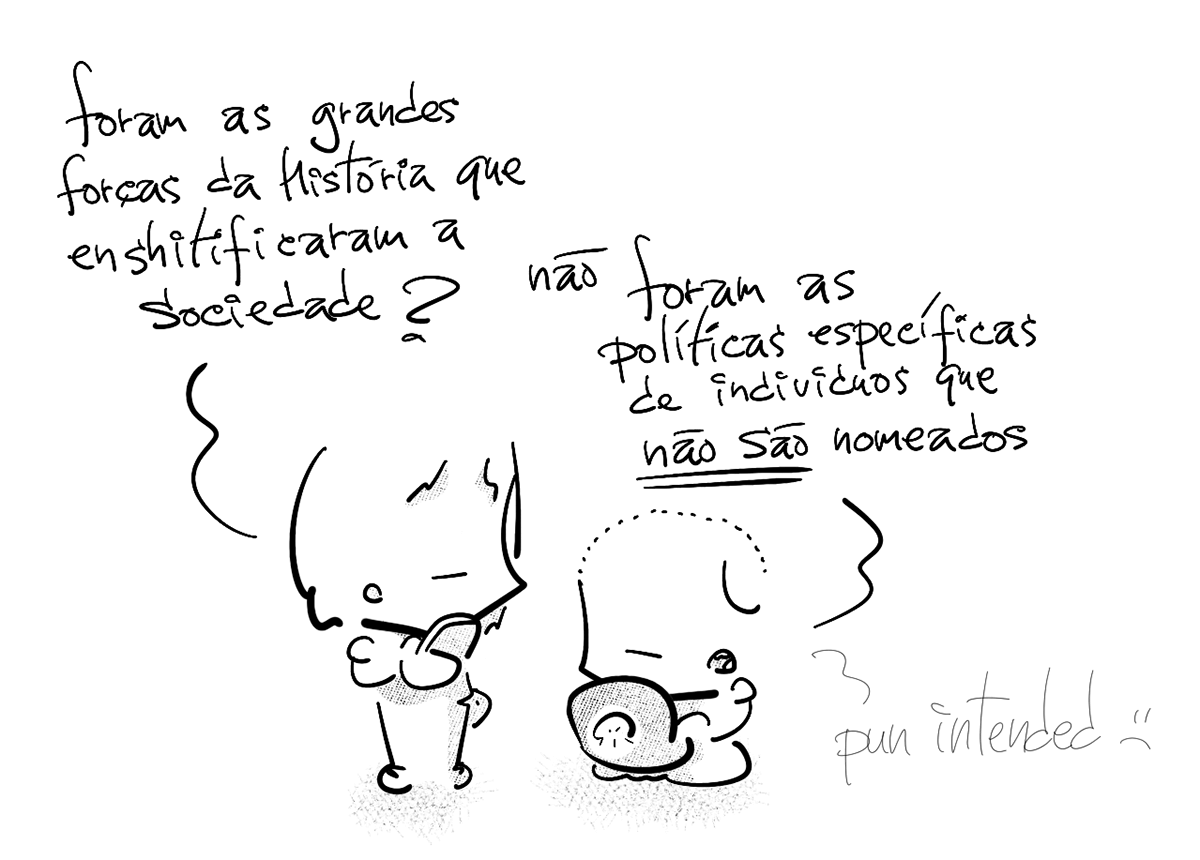 foram as grandes
forças da História que
enshitificaram a
sociedade?
não foram as
políticas específicas
de indivíduos que
não são nomeados
pun intended :(